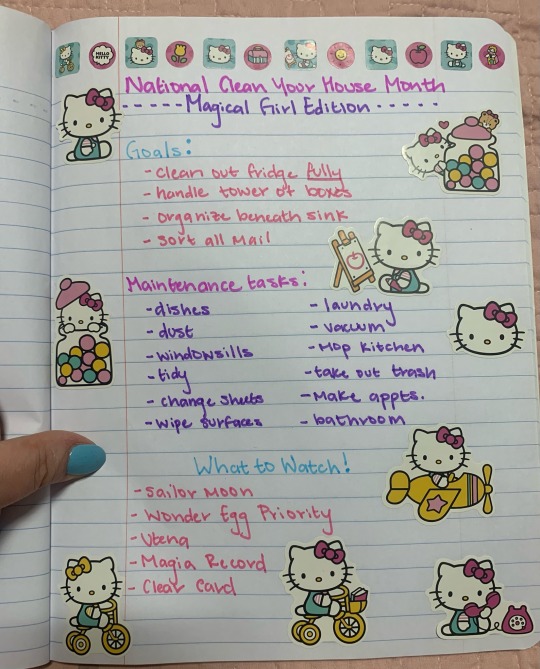 HELLO KITTY
National Clean Your House Month
-----Magical Girl Edition-----
Goals:
- clean out fridge fully
- handle tower of boxes
- organize beneath sink
- sort all mail
Maintenance tasks:
- dishes
- dust
- windowsills
- tidy
- change sheets
- wipe surfaces
- laundry
- vacuum
- Mop kitchen
- take out trash
- Make appts.
- bathroom
What to Watch!
- Sailor Moon
- Wonder Egg Priority
- Utena
- Magia Record
- Clear Card